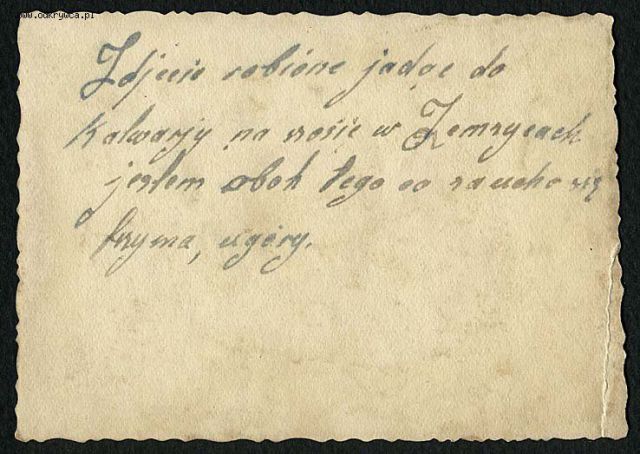 www.odkrywca.pl
Zdjęcie robione jadąc do
Kalwarji na szosie w Zemrzycach
jestem obok tego co za ucho się
trzyma, u góry.